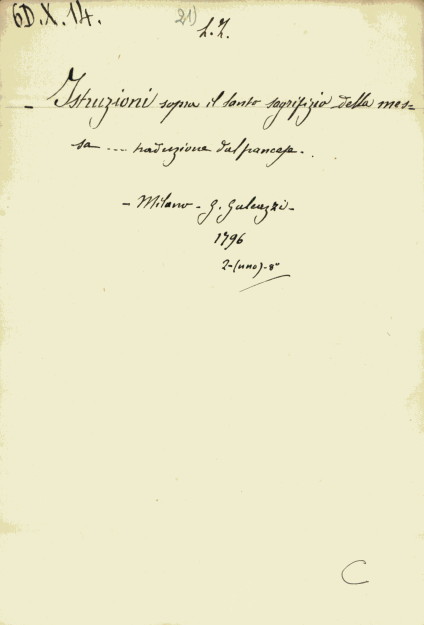 6D.X.14. 21)
L.Z.
- Istruzioni sopra il santo sagrifizio della mes=
sa .... traduzione dal francese.
- Milano - G. Galeazzi -
1796
2-(uno)-8°
C